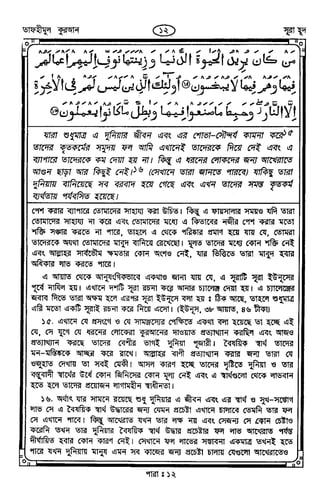 তাফহীমুল কুরআন
১২
সূরা হূদ
مَنْ كَانَ يُرِيْدُ الْحَيٰوةَ الدُّنْيَا وَزِيْنَتَهَا نُوَفِّ اِلَيْهِمْ اَعْمَالَهُمْ
فِيْهَا وَهُمْ فِيْهَا لَا يُبْخَسُوْنَ ۝ اُولٰٓئِكَ الَّذِيْنَ لَيْسَ لَهُمْ فِى الْاٰخِرَةِ
اِلَّا النَّارُ ۖ وَحَبِطَ مَا صَنَعُوْا فِيْهَا وَبٰطِلٌ مَّا كَانُوْا يَعْمَلُوْنَ ۝
যারা শুধুমাত্র এ দুনিয়ার জীবন এবং এর শোভা-সৌন্দর্য কামনা করে১৫
তাদের কৃতকর্মের সমুদয় ফল আমি এখানেই তাদেরকে দিয়ে দেই এবং এ
ব্যাপারে তাদেরকে কম দেয়া হয় না। কিন্তু এ ধরনের লোকদের জন্য আখেরাতে
আগুন ছাড়া আর কিছুই নেই।১৬ (সেখানে তারা জানতে পারবে) যাকিছু তারা
দুনিয়ায় বানিয়েছে সব বরবাদ হয়ে গেছে এবং এখন তাদের সমস্ত কৃতকর্ম
ব্যর্থতায় পর্যবসিত হয়েছে।
পেশ করার ব্যাপারে তোমাদের সাহায্য করা উচিত। কিন্তু এ ফায়সালার সময়ও যদি তারা
তোমাদের সাহায্য না করে এবং তোমাদের মধ্যে এ কিতাবের নজীর পেশ করার মতো
শক্তি সঞ্চার করতে না পারে, তাহলে এ থেকে পরিষ্কার প্রমাণ হয়ে যায় যে, তোমরা
তাদেরকে অযথা তোমাদের মাবুদ বানিয়ে রেখেছো। মূলত তাদের মধ্যে কোন শক্তি নেই
এবং আল্লাহর সার্বভৌম ক্ষমতার কোন অংশও নেই, যার ভিত্তিতে তারা মাবুদ হবার
অধিকার লাভ করতে পারে।
এ আয়াত থেকে আনুষংগিকভাবে একথাও জানা যায় যে, এ সূরাটি সূরা ইউনুসের
পূর্বে নাযিল হয়। এখানে দশটি সূরা রচনা করে আনার চ্যালেঞ্জ দেয়া হয়। এ চ্যালেঞ্জের
জবাব দিতে তারা অক্ষম হলে এরপর সূরা ইউনুসে বলা হয় ঃ ঠিক আছে, তাহলে শুধুমাত্র
এরি মতো একটি সূরাই রচনা করে নিয়ে এসো। (ইউনুস, ৩৮ আয়াত, ৪৬ টীকা)
১৫. এখানে যে প্রসংগে ও যে সামঞ্জস্যের প্রেক্ষিতে একথা বলা হয়েছে তা হচ্ছে এই
যে, সে যুগে যে ধরনের লোকেরা কুরআনের দাওয়াত প্রত্যাখ্যান করছিল এবং আজও
প্রত্যাখ্যান করছে তাদের বেশীর ভাগই দুনিয়া পূজারী। বৈষয়িক স্বার্থ তাদের
মন-মস্তিষ্ককে আচ্ছন্ন করে রাখে। আল্লাহর বাণী প্রত্যাখ্যান করার জন্য তারা যে
ওজুহাত দেখায় তা সবই মেকী। আসল কারণ হচ্ছে তাদের দৃষ্টিতে দুনিয়া ও তার
বস্তুবাদী স্বার্থের উর্ধে কোন জিনিসের কোন মূল্য নেই এবং এ স্বার্থগুলো থেকে লাভবান
হতে হলে তাদের প্রয়োজন লাগামহীন স্বাধীনতা।
১৬. অর্থাৎ যার সামনে রয়েছে শুধু দুনিয়ার এ জীবন এবং এর স্বার্থ ও সুখ-সম্ভোগ
লাভ সে এ বৈষয়িক স্বার্থ উদ্ধারের জন্য যেমন প্রচেষ্টা এখানে চালাবে তেমনি তার ফল
সে এখানে পাবে। কিন্তু আখেরাত যখন তার লক্ষ নয় এবং সেজন্য সে কোন চেষ্টাও
করেনি তখন তার দুনিয়ার বৈষয়িক স্বার্থ উদ্ধার প্রচেষ্টার ফল লাভ আখেরাত পর্যন্ত
দীর্ঘায়িত হবার কোন কারণ নেই। সেখানে ফল লাভের সম্ভাবনা একমাত্র তখনই হতে
পারে যখন দুনিয়ায় মানুষ এমন সব কাজের জন্য প্রচেষ্টা চালায় যেগুলো আখেরাতেও
পারা ঃ ১২